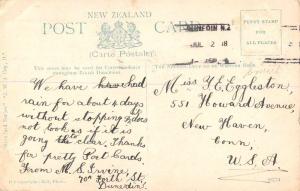 NEW ZEALAND
POST CARD
(Carte Postale)
PENNY STAMP
FOR
ALL PLACES
DUNEDIN N.Z.
JUL 2 18
We have had
rain for about 4 days
without stopping & does
not look as if it is
going to clear. Thanks
for pretty Post Cards.
From M. S. Irvine,
70A Forth St.
Dunedin.
Miss Y. E. Eggleston,
551 Howard Avenue,
New Haven,
Conn,
U.S.A.